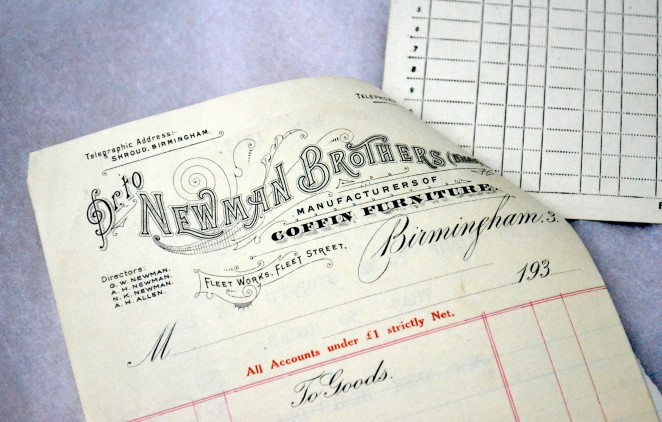 Telegraphic Address:-
SHROUD, BIRMINGHAM.
Dr to
NEWMAN BROTHERS
MANUFACTURERS OF
COFFIN FURNITURE.
FLEET WORKS, FLEET STREET,
Birmingham. 3.
Directors
G. W. NEWMAN.
A. H. NEWMAN.
N. K. NEWMAN.
A. H. ALLEN.
193
M
All Accounts under £1 strictly Net.
To Goods.
5
6
7
8
9